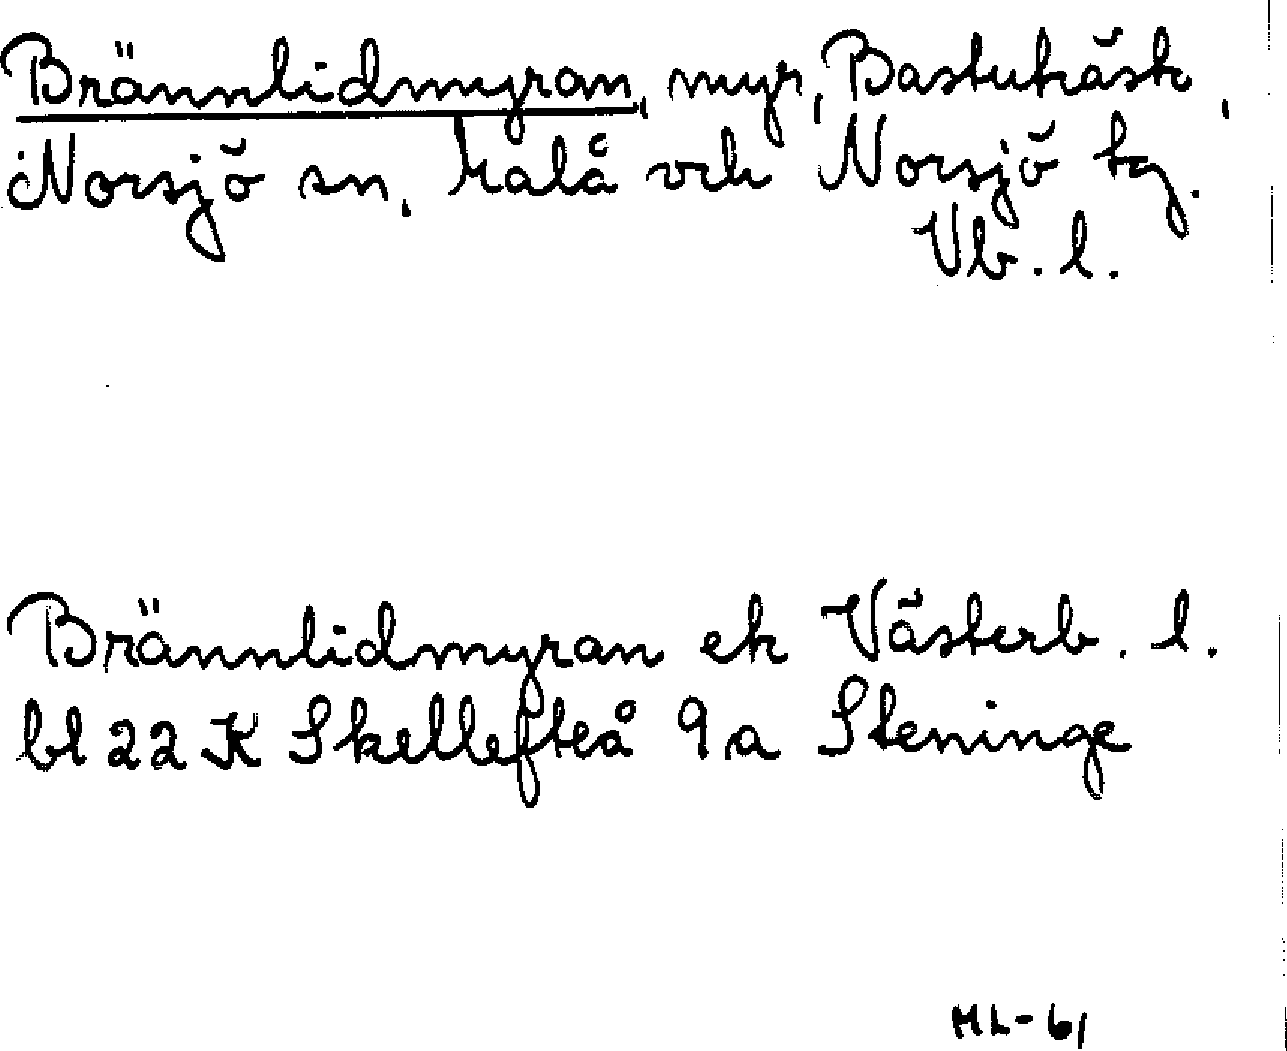 Brännlidmyran, myr, Bastuträsk,
Norsjö sn, Malå och Norsjö tg.
Vb. l.
Brännlidmyran ek Västerb. l.
bl 22 K Skellefteå 9 a Steninge
ML-61